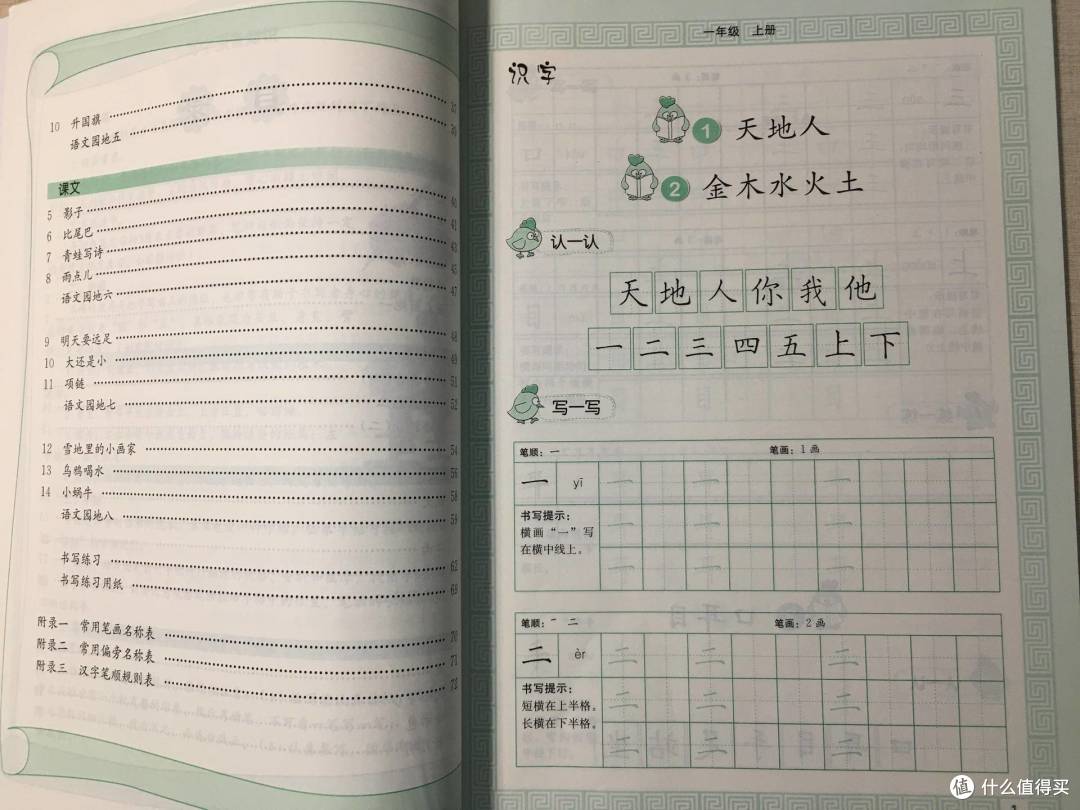 10 升国旗 37
语文园地五 39
课文
5 影子 40
6 比尾巴 41
7 青蛙写诗 43
8 雨点儿 45
语文园地六 47
9 明天要远足 48
10 大还是小 49
11 项链 51
语文园地七 52
12 雪地里的小画家 54
13 乌鸦喝水 56
14 小蜗牛 58
语文园地八 59
书写练习 62
书写练习用纸 69
附录一 常用笔画名称表 70
附录二 常用偏旁名称表 71
附录三 汉字笔顺规则表 72
一年级 上册
识字
1 天地人
2 金木水火土
认一认
天地人你我他
一二三四五上下
写一写
笔顺：一 笔画：1 画
一 yī 一 一 一
书写提示：
横画“一”写
在横中线上。
一 一 一
一 一 一
笔顺：一 二 笔画：2 画
二 èr 二 二 二
书写提示：
短横在上半格。
长横在下半格。
二 二 二
二 二 二
值 什么值得买